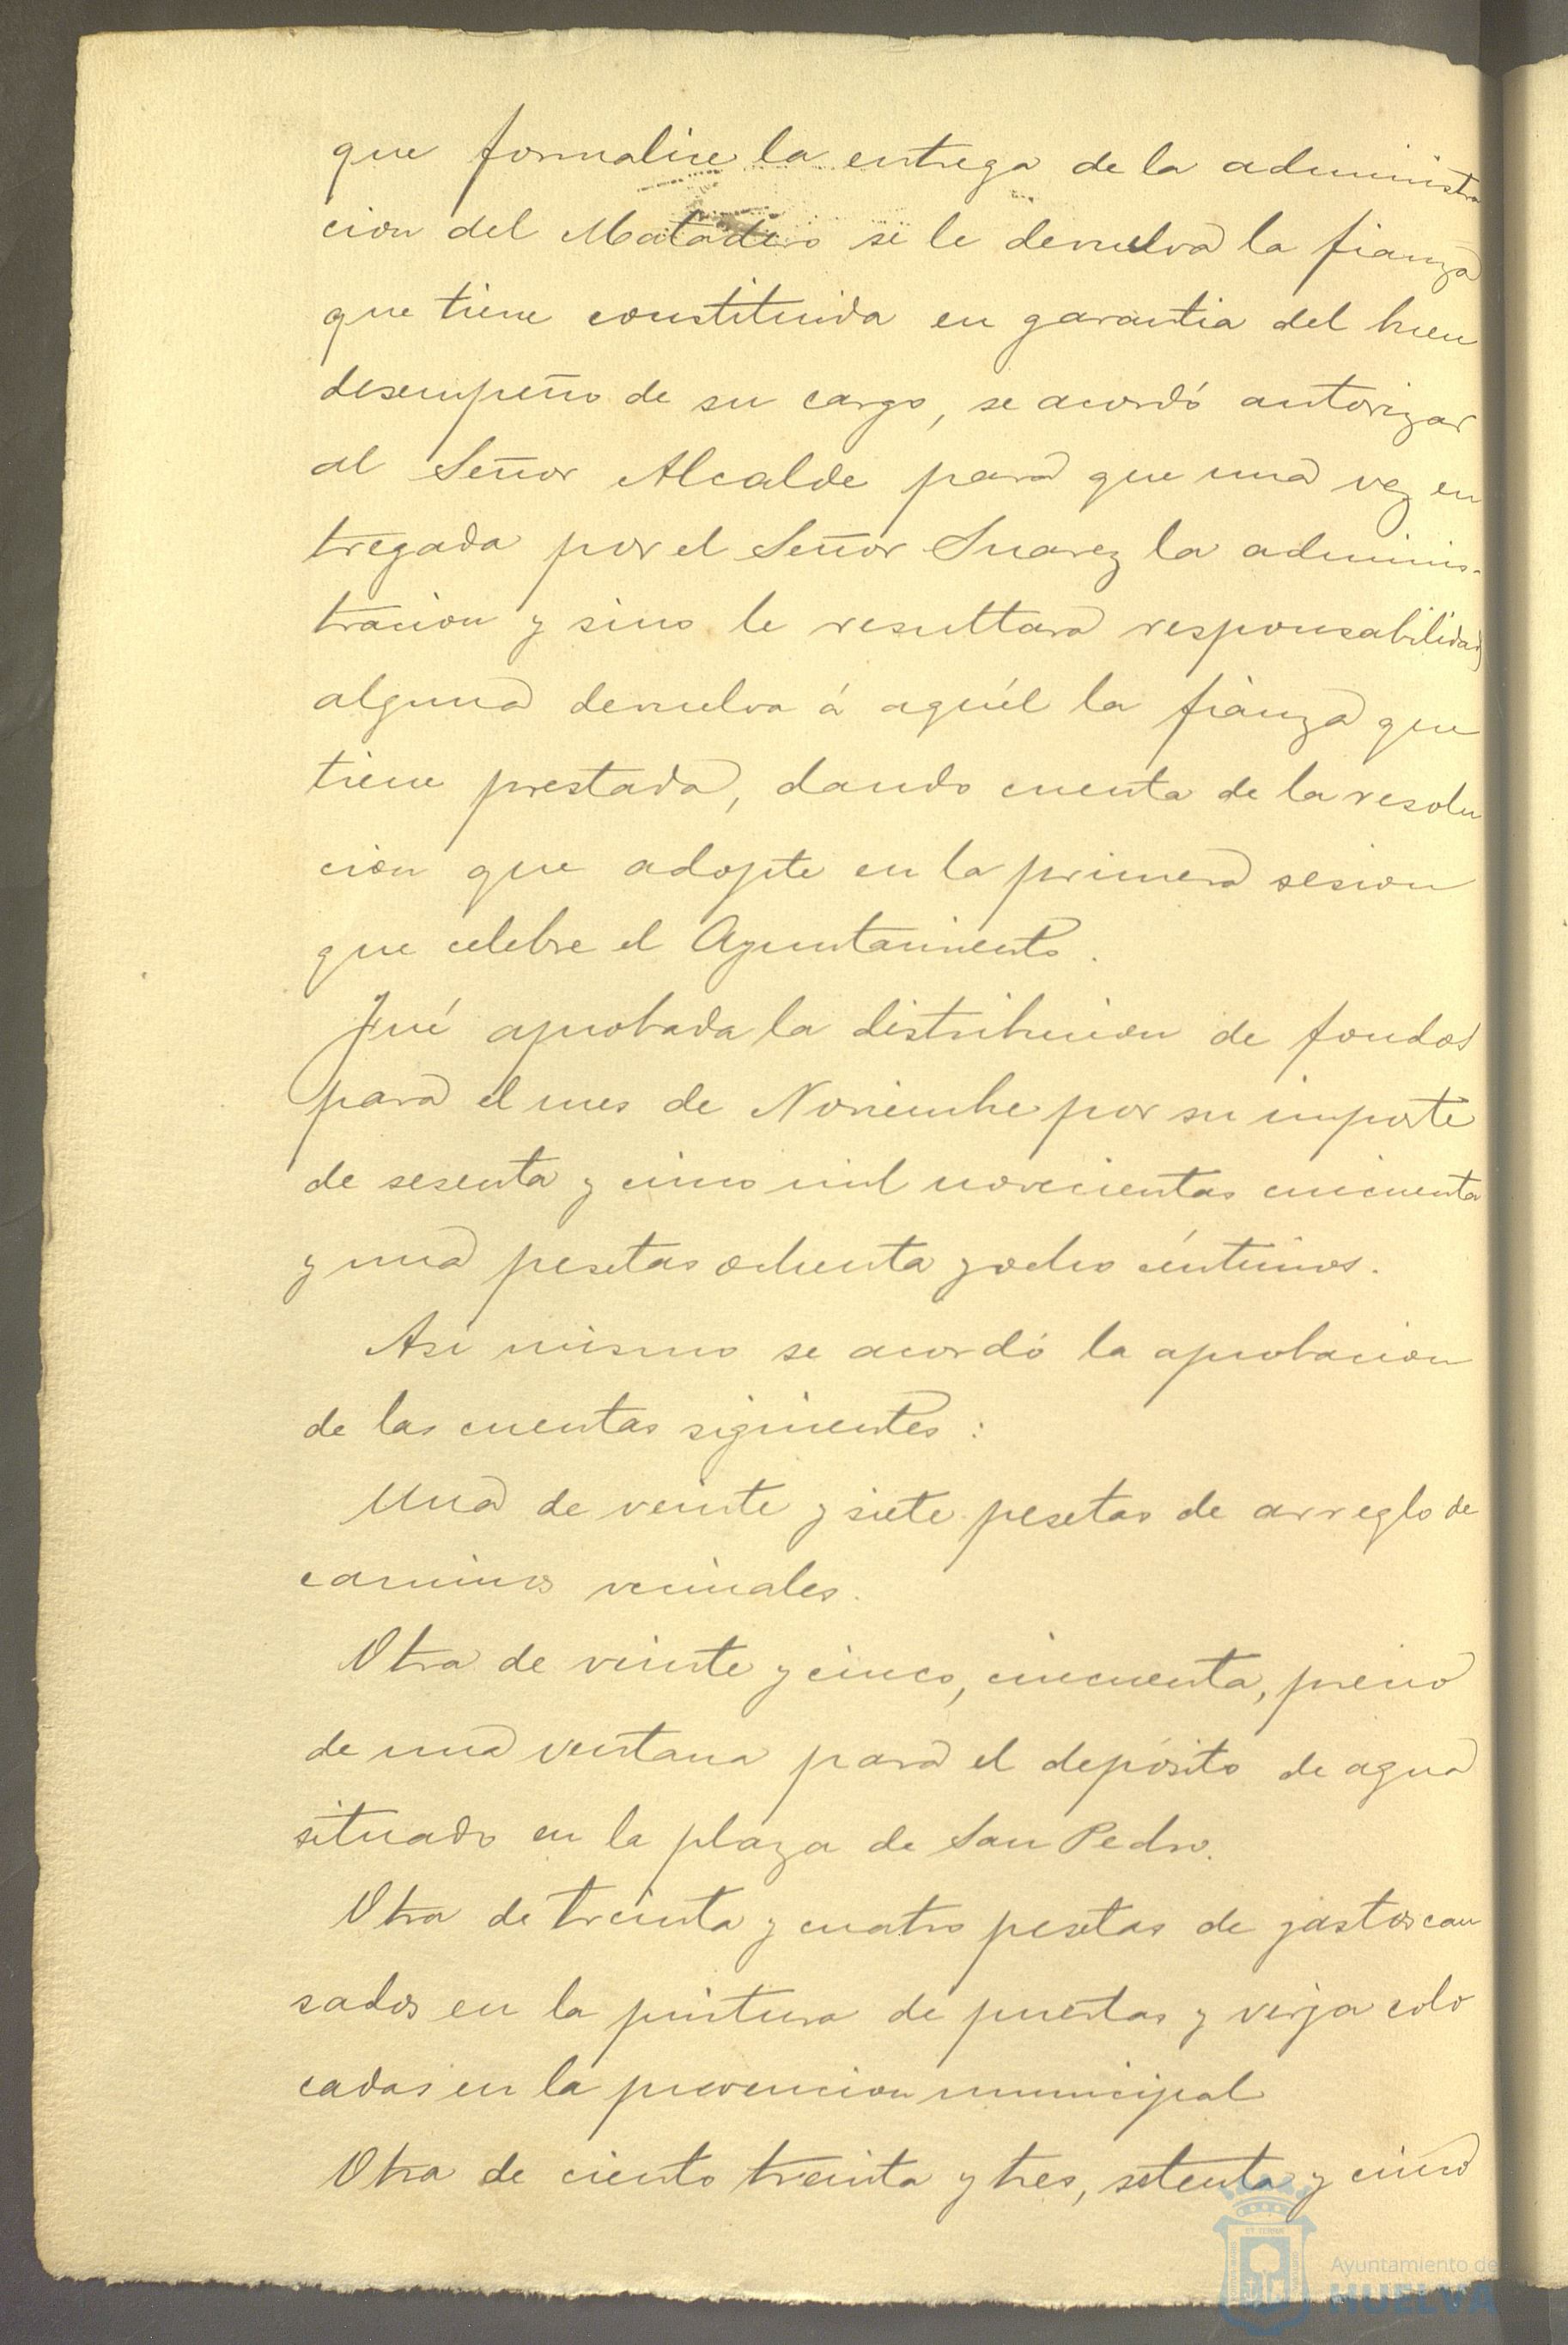 que formalice la entrega de la administra
cion del Matadero se le devuelva la fianza
que tiene constituida en garantia del buen
desempeño de su cargo, se acordó autorizar
al Señor Alcalde para que una vez en
tregada por el Señor Suarez la adminis-
tracion y sino le resultara responsabilidad
alguna devuelva á aquél la fianza que
tiene prestada, dando cuenta de la resolu
cion que adopte en la primera sesion
que celebre el Ayuntamiento.
Fué aprobada la distribucion de fondos
para el mes de Noviembre por su importe
de sesenta y cinco mil novecientas cincuenta
y una pesetas ochenta y ocho céntimos.
Asi mismo se acordó la aprobacion
de las cuentas siguientes:
Una de veinte y siete pesetas de arreglo de
caminos vecinales.
Otra de veinte y cinco, cincuenta, precio
de una ventana para el depósito de agua
situado en la plaza de San Pedro.
Otra de treinta y cuatro pesetas de gastos cau
sados en la pintura de puertas y verja colo
cadas en la prevencion municipal
Otra de ciento treinta y tres, setenta y cinco
Ayuntamiento de
HUELVA